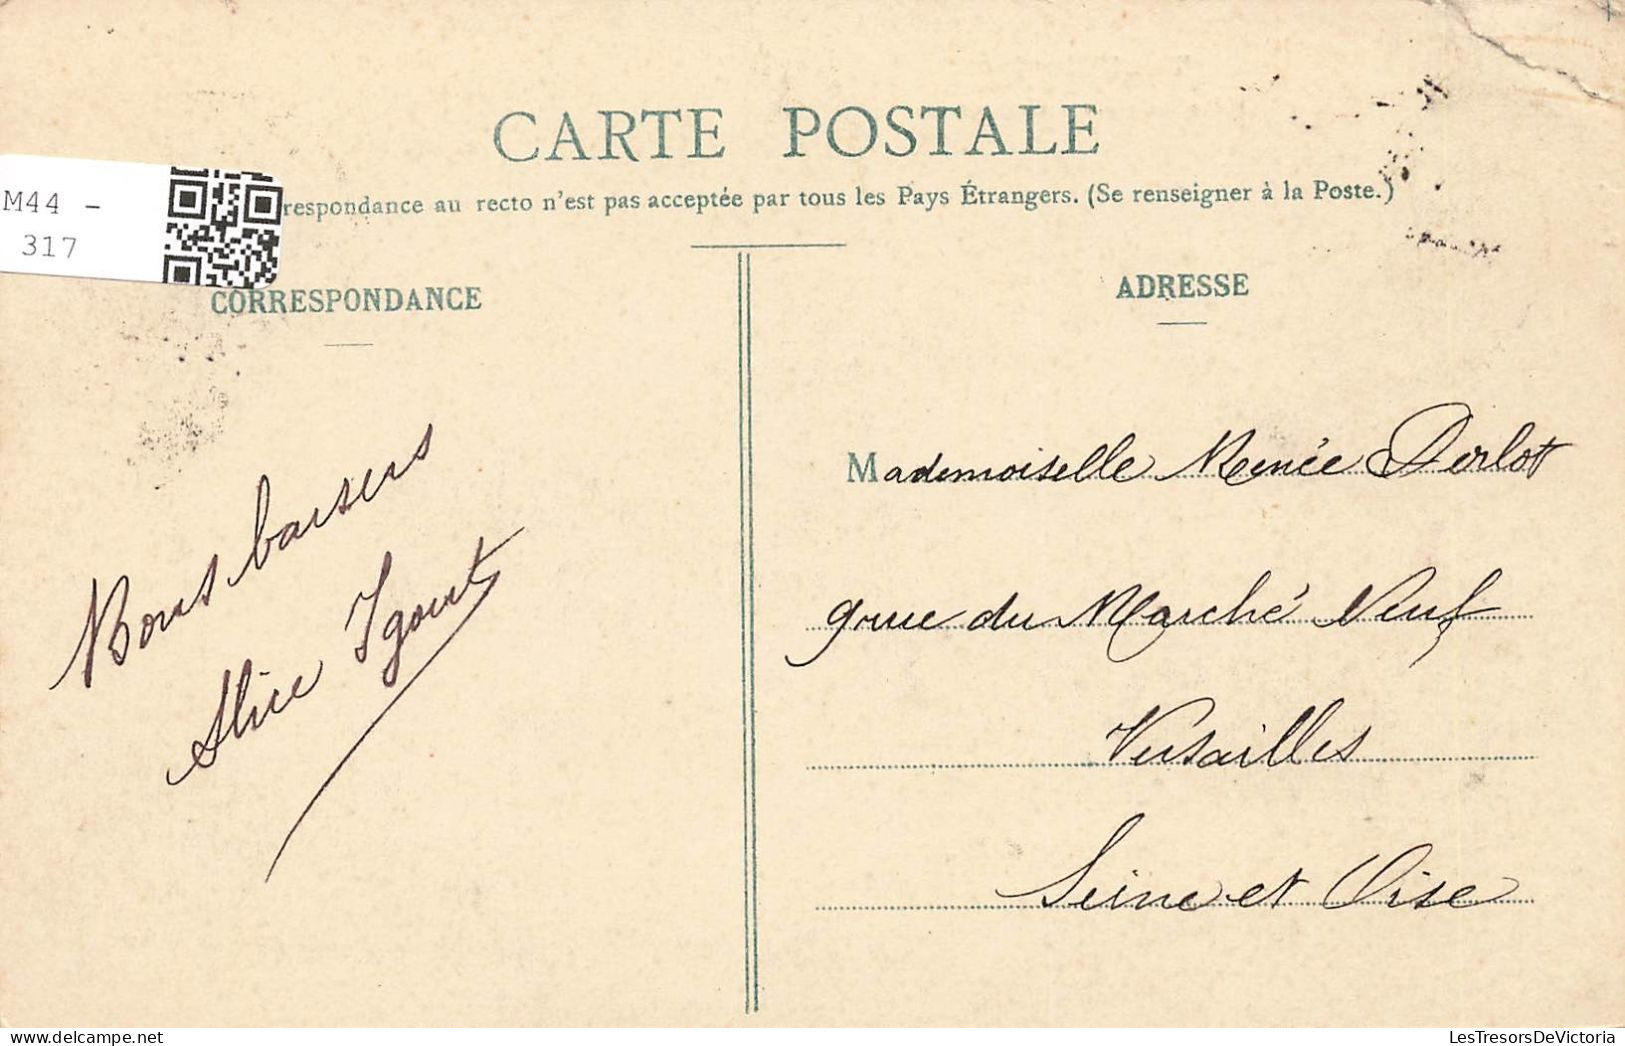 CARTE POSTALE
respondance au recto n'est pas acceptée par tous les Pays Étrangers. (Se renseigner à la Poste.)
M44 -
317
CORRESPONDANCE
Bons baisers
Alice Igout
ADRESSE
Mademoiselle Renée Derlot
9 rue du Marché Neuf
Versailles
Seine et Oise
delcampe.net
LesTresorsDeVictoria